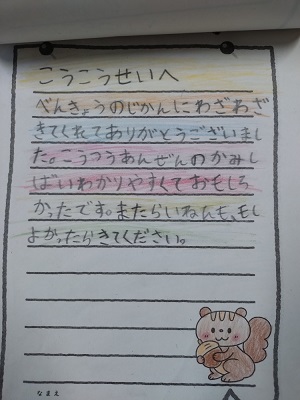 こうこうせいへ
べんきょうのじかんにわざわざ
きてくれてありがとうございまし
た。こうつうあんぜんのかみし
ばいわかりやすくておもしろ
かったです。またらいねんも、もし
よかったらきてください。
なまえ